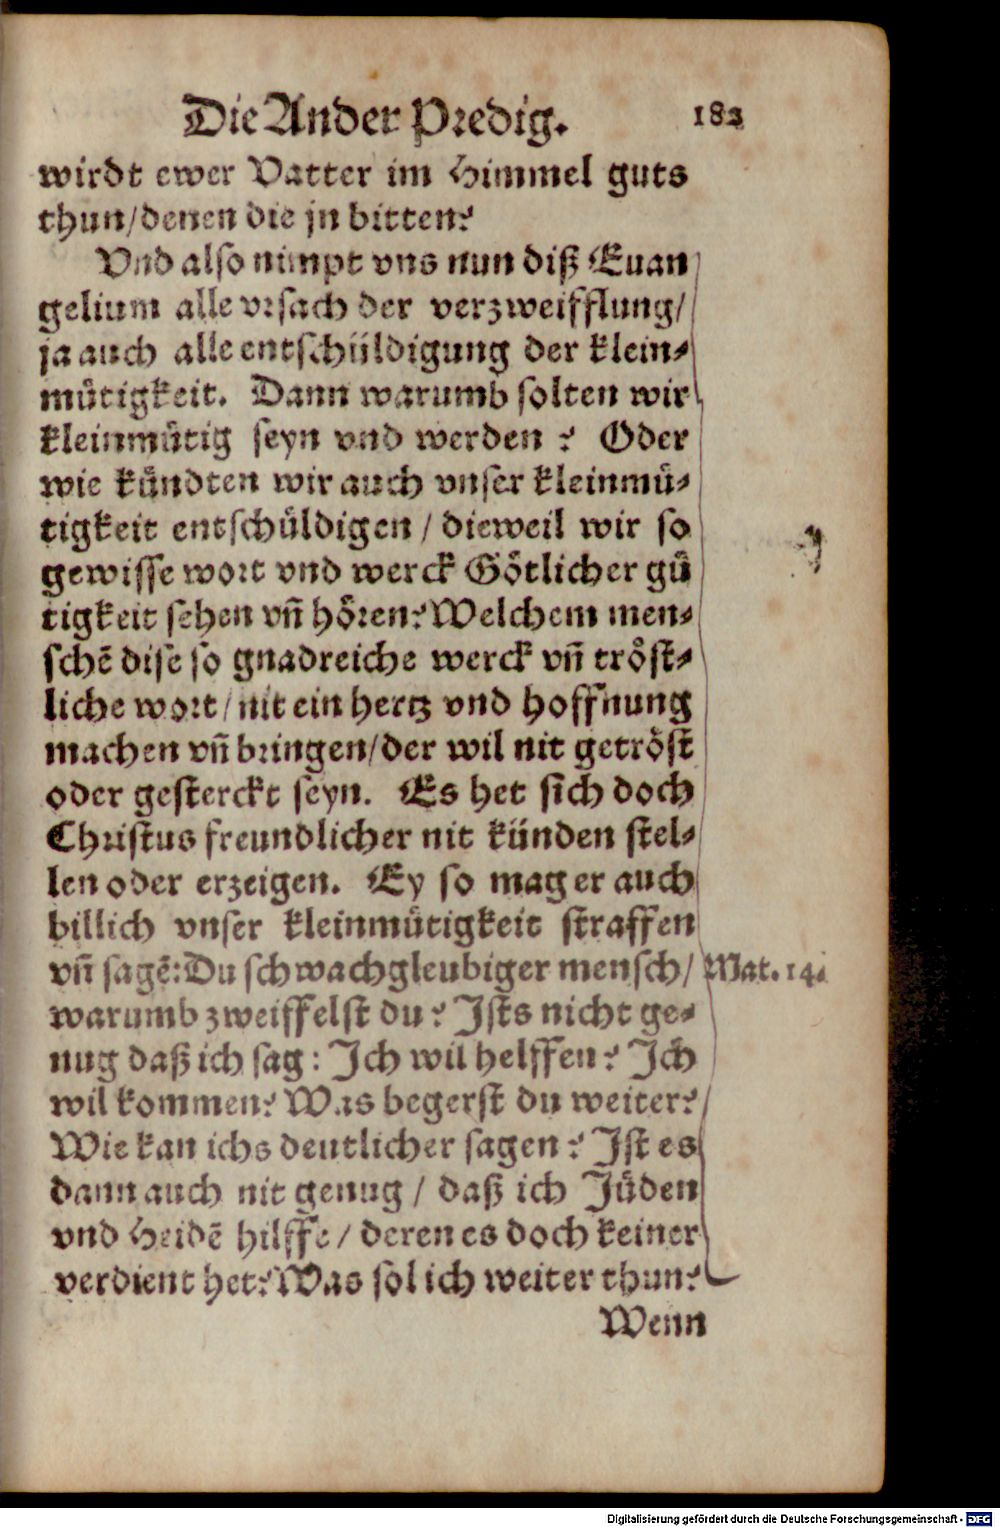 Die Ander Predig. 182
wirdt ewer Vatter im Himmel guts
thun/denen die jn bitten?
Vnd also nimpt vns nun diß Euan
gelium alle vrsach der verzweifflung/
ja auch alle entschüldigung der klein⸗
mütigkeit. Dann warumb solten wir
kleinmütig seyn vnd werden? Oder
wie kündten wir auch vnser kleinmü⸗
tigkeit entschüldigen/ dieweil wir so
gewisse wort vnd werck Götlicher gü
tigkeit sehen vñ hören? Welchem men⸗
schẽ dise so gnadreiche werck vñ tröst⸗
liche wort/ nit ein hertz vnd hoffnung
machen vñ bringen/der wil nit getröst
oder gesterckt seyn. Es het sich doch
Christus freundlicher nit künden stel⸗
len oder erzeigen. Ey so mag er auch
billich vnser kleinmütigkeit straffen
vñ sagẽ: Du schwachgleubiger mensch/ Mat. 14.
warumb zweiffelst du? Ists nicht ge⸗
nug daß ich sag: Ich wil helffen? Ich
wil kommen? Was begerst du weiter?
Wie kan ichs deutlicher sagen? Ist es
dann auch nit genug/ daß ich Jüden
vnd Heidẽ hilffe/ deren es doch keiner
verdient het? Was sol ich weiter thun?
Wenn
Digitalisierung gefördert durch die Deutsche Forschungsgemeinschaft - DFG